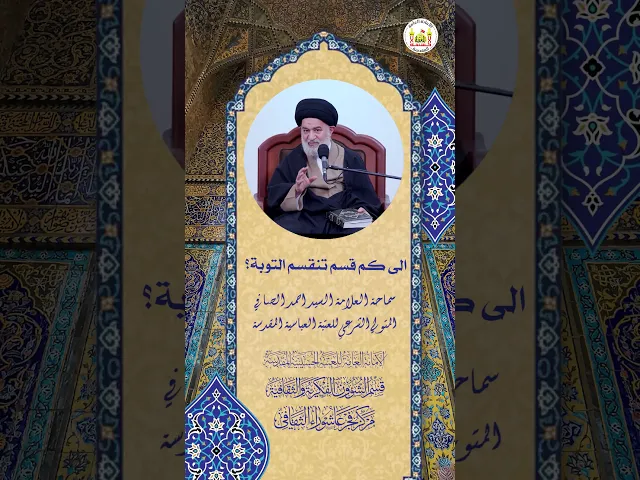 الى كم قسم تنقسم التوبة؟
سماحة العلامة السيد احمد الصافي
المتولي الشرعي للعتبة العباسية المقدسة
الامانة العامة للعتبة الحسينية المقدسة
قسم الشؤون الفكرية والثقافية
مركز فجر عاشوراء الثقافي